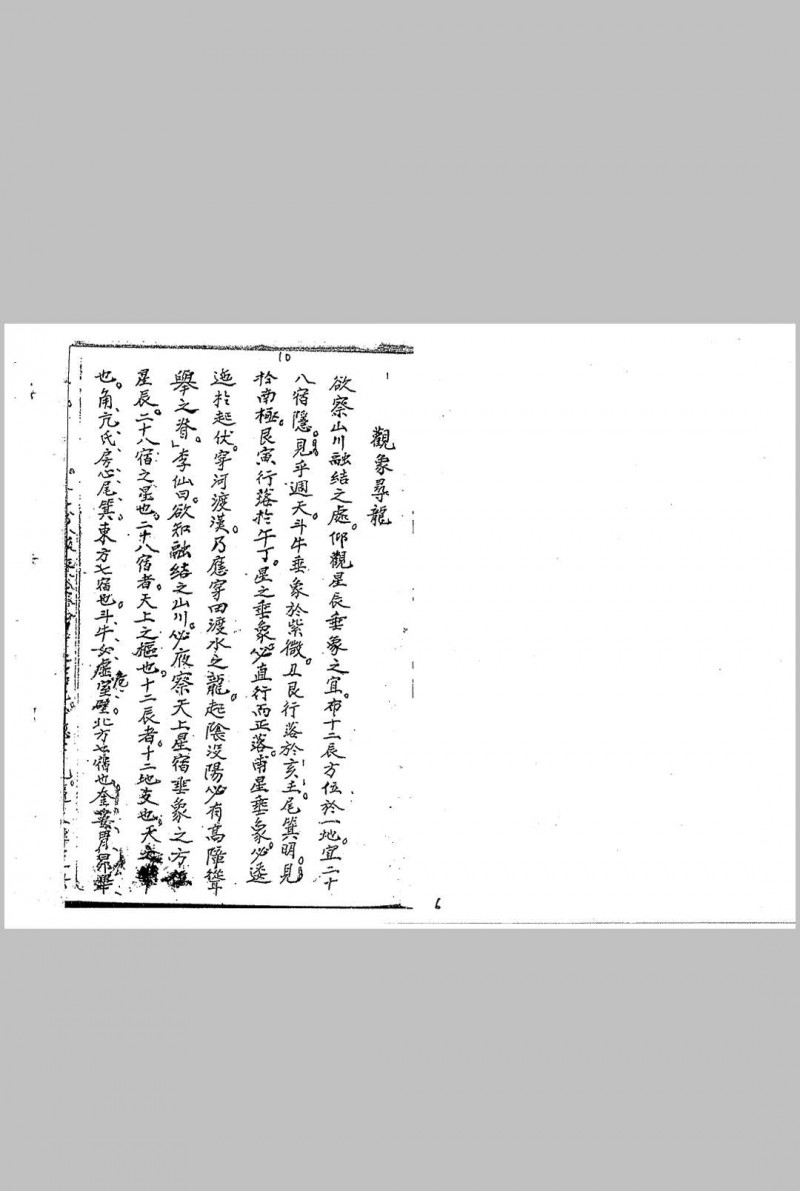 10
觀象尋龍
欲察山川融結之處。仰觀星辰垂象之宜。布十二辰方位於一地。宜二十
八宿隱。見乎週天。斗牛垂象於紫微。丑艮行落於亥壬。尾箕明。見
於南極。艮寅行落於午丁。星之垂象。必直行而正落。南星垂象。必逶
迤於起伏。穿河渡漢。乃應穿田渡水之龍。起陰没陽。必有高障聳
舉之脊。」李仙曰。欲知融結之山川。必夜察天上星宿垂象之方
星辰。二十八宿之星也。二十八宿者。天上之樞也。十二辰者。十二地支也。天
也。角、亢、氐、房、心、尾、箕。東方七宿也。斗、牛、女、虛、危、室、壁。北方七宿也。奎、婁、胃、昴、畢
6